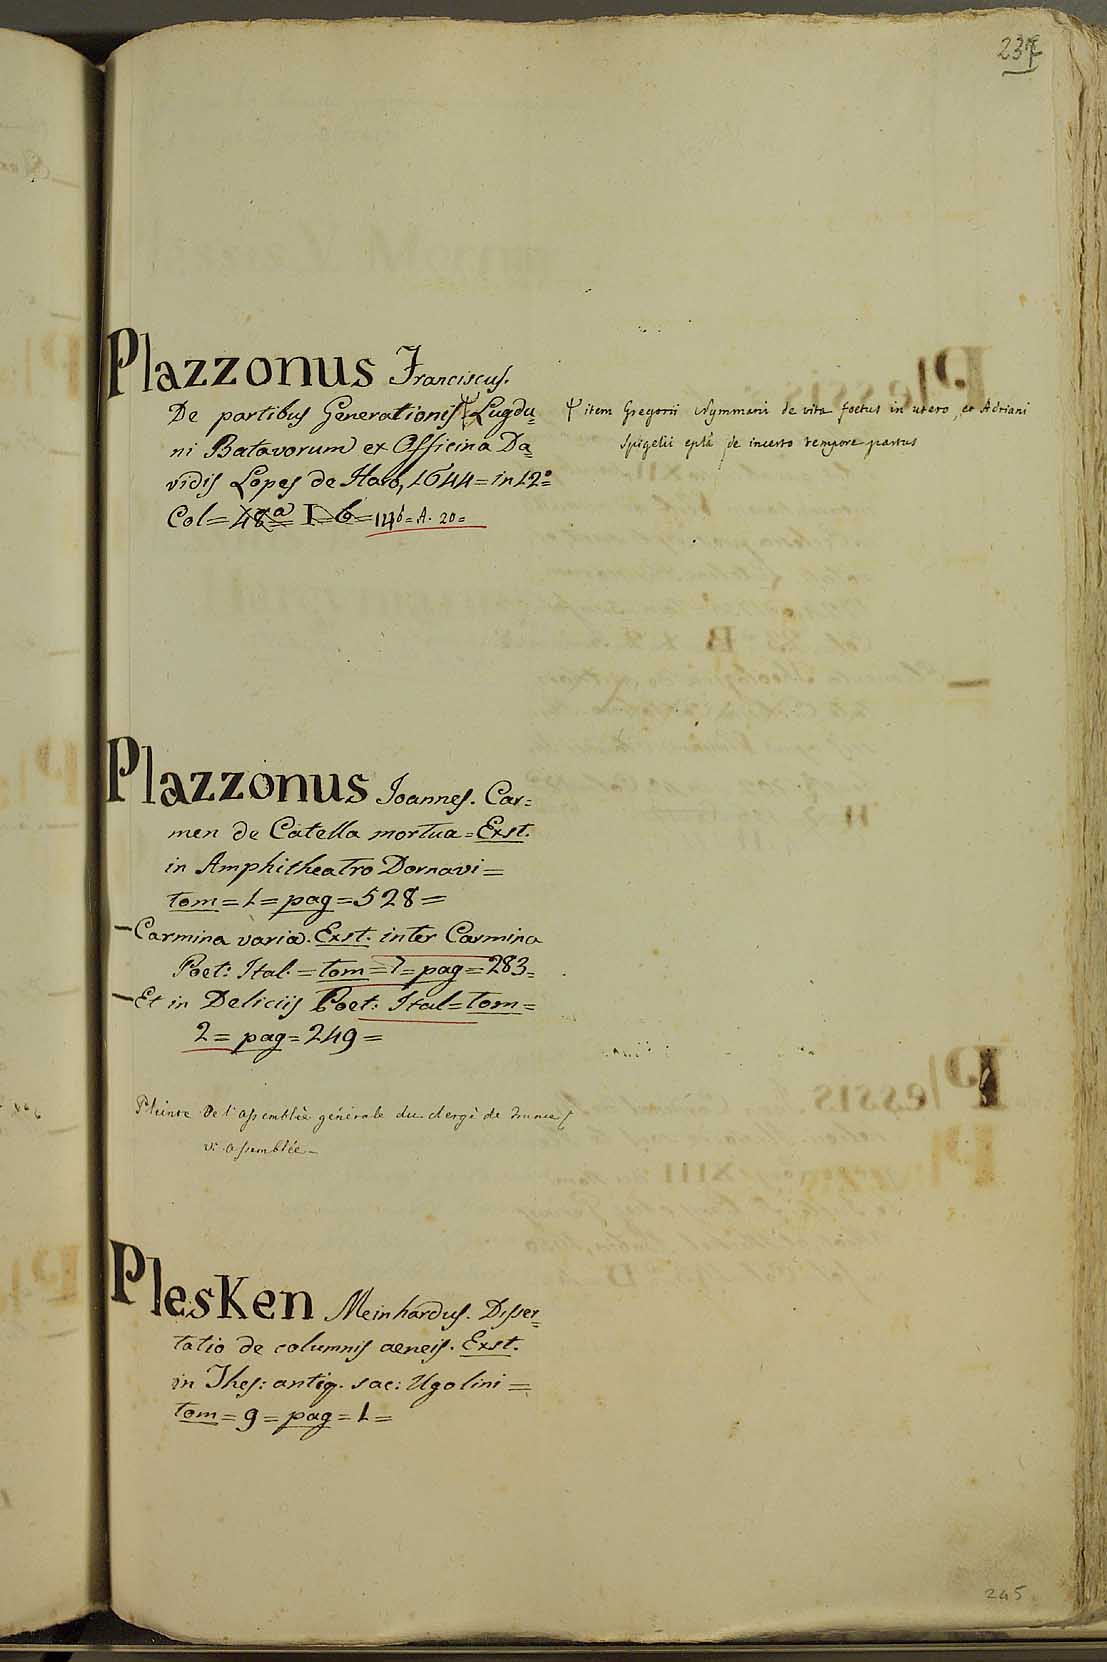 237
Plazzonus Franciscus.
De partibus Generationis Ψ Lugdu=
ni Batavorum ex Officina Da=
vidis Lopes de Haro, 1644 = in 12°=
Col= 48ª I=6= 14b= A. 20=
Ψ item Gregorii Nymmani de vita foetus in utero, et Adriani
Spigelii epla de incerto tempore partus
Plazzonus Joannes. Car=
men de Catella mortua = Exst.
in Amphitheatro Dornavi =
tom = 1 = pag = 528 =
– Carmina varia. Exst. inter Carmina
Poet: Ital. = tom = 7 = pag = 283=
– Et in Deliciis Poet: Ital = tom =
2 = pag = 249 =
Plainte de l'assemblée générale du clergé de France /
v. assemblée –
Plesken Meinhardus. Disser=
tatio de columnis aeneis. Exst.
in Thes: antiq. sac: Ugolini =
tom = 9 = pag = 1 =
245